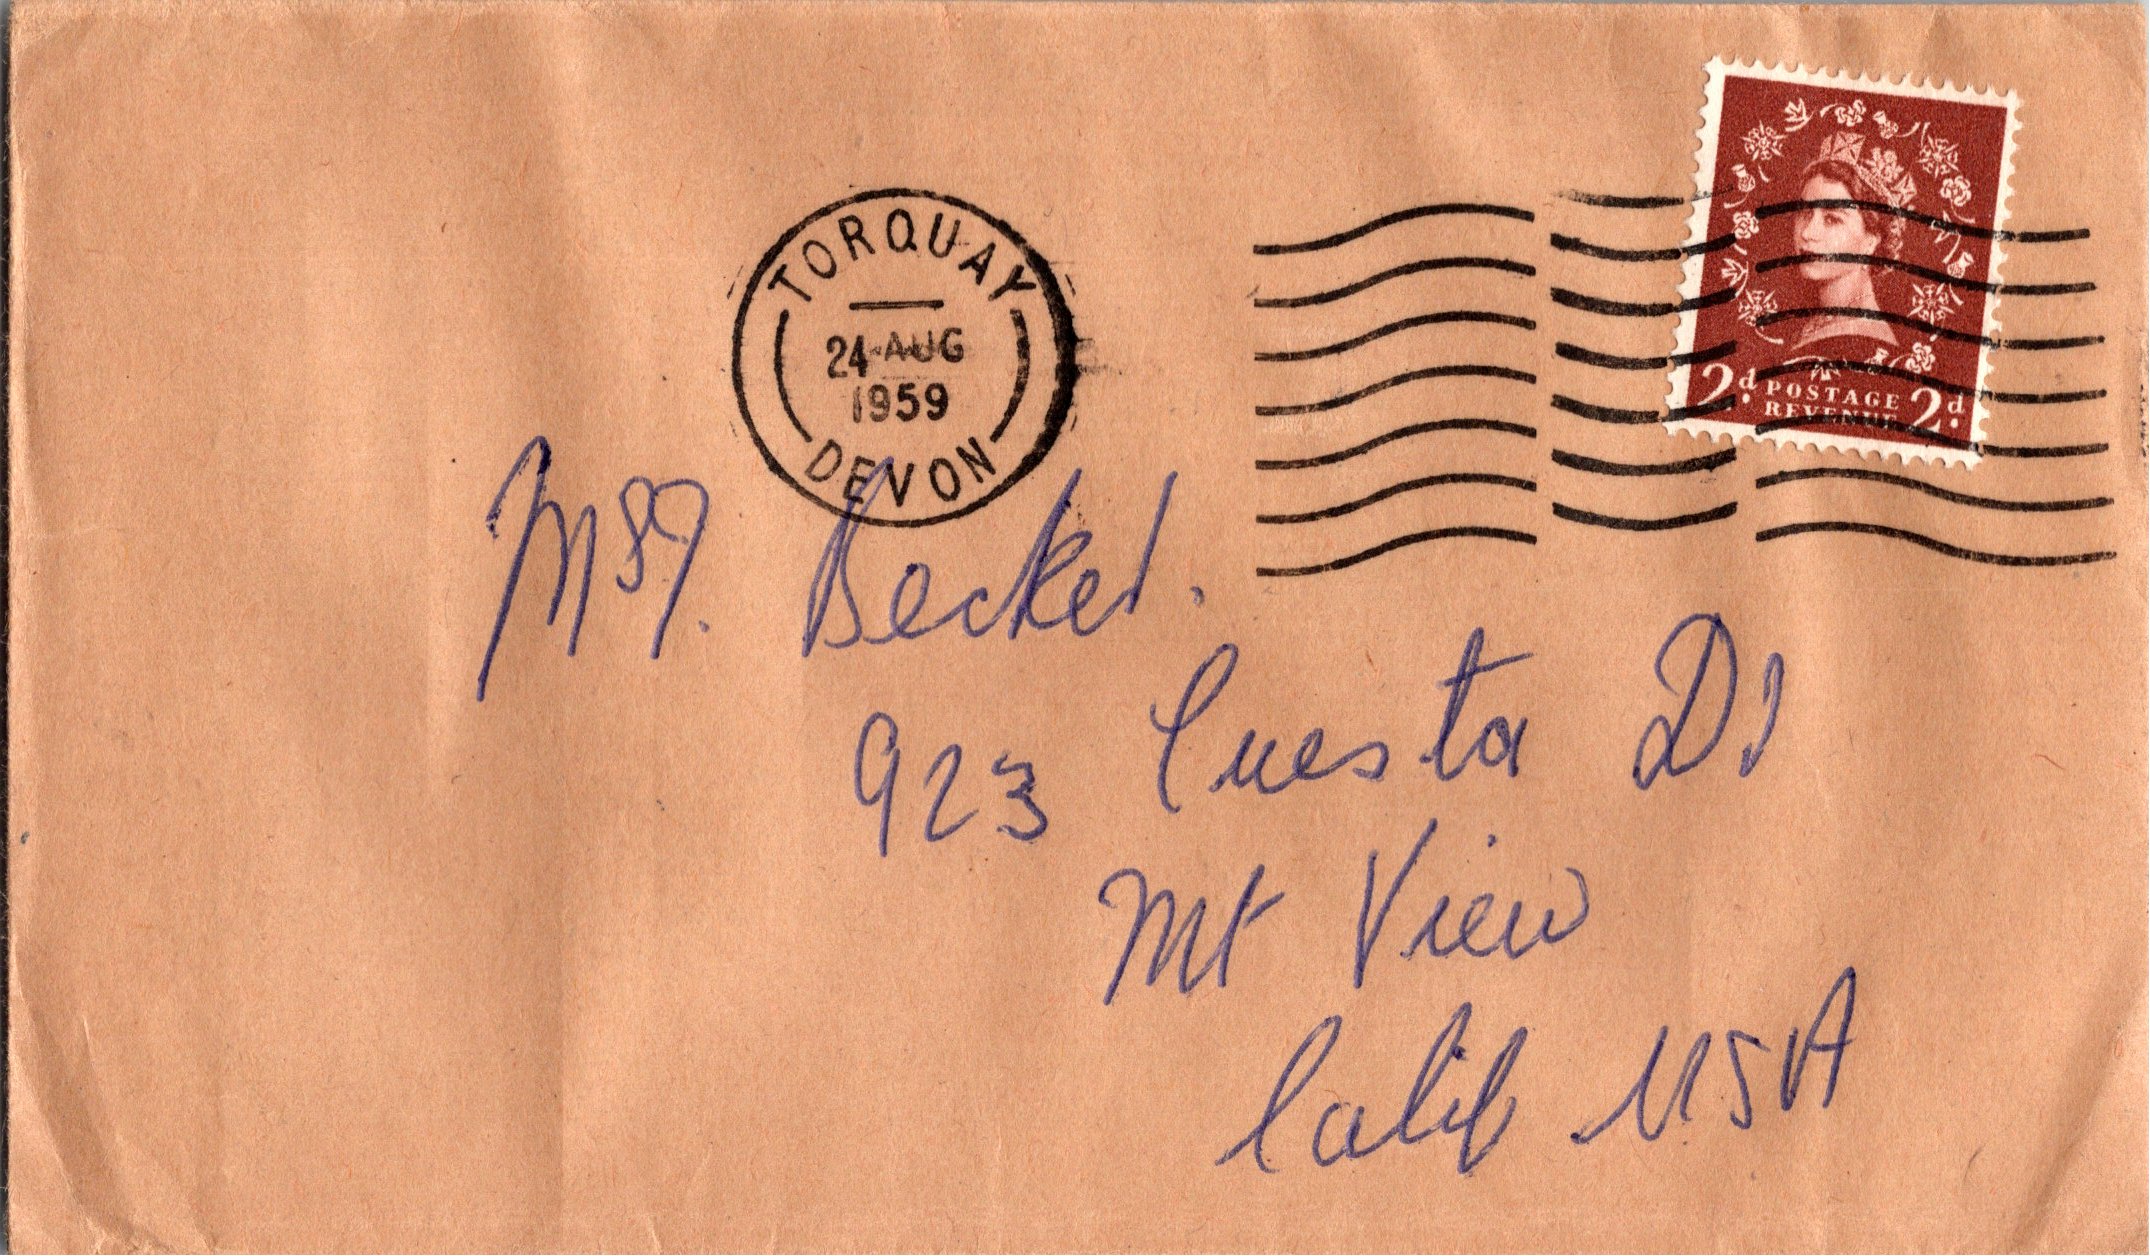 TORQUAY
24 AUG
1959
DEVON
2d. POSTAGE 2d.
REVENUE
Becker.
923 Cuesta Dr
Mt View
Calif USA